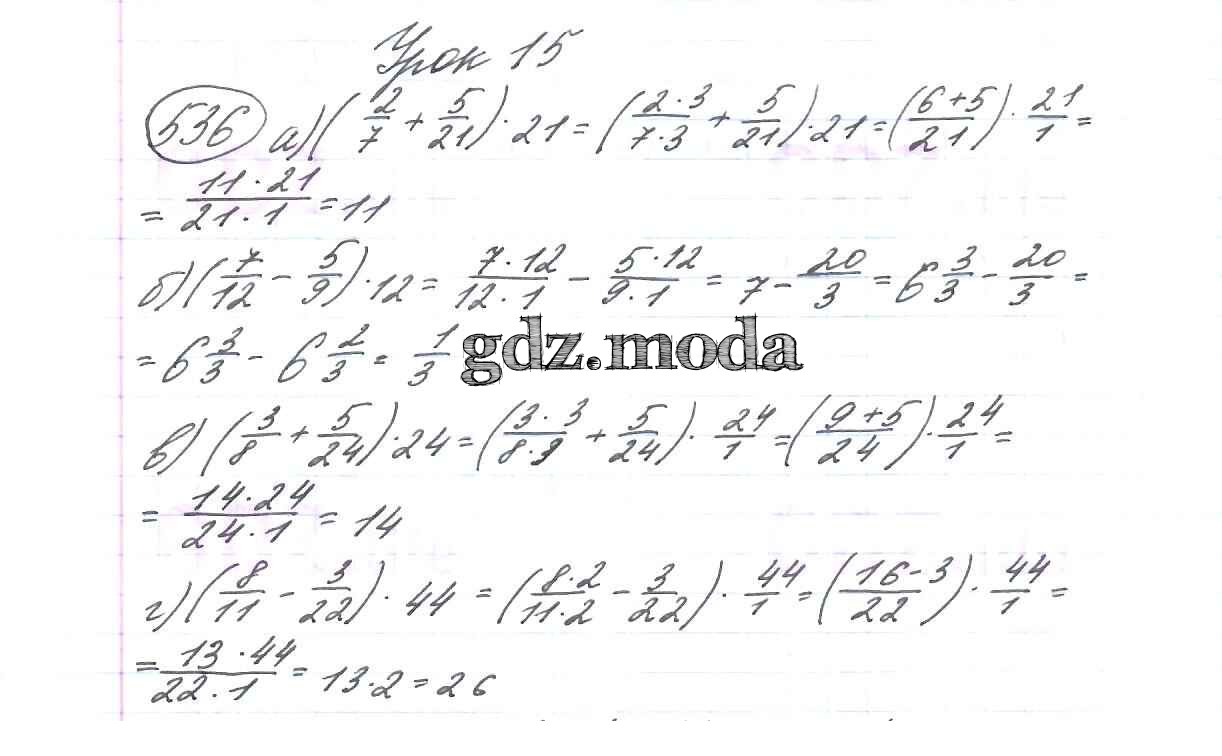 Урок 15
536 а) (2/7 + 5/21) · 21 = (2·3/7·3 + 5/21) · 21 = (6+5/21) · 21/1 =
= 11·21/21·1 = 11
б) (7/12 - 5/9) · 12 = 7·12/12·1 - 5·12/9·1 = 7 - 20/3 = 6 3/3 - 20/3 =
= 6 3/3 - 6 2/3 = 1/3
gdz.moda
в) (3/8 + 5/24) · 24 = (3·3/8·3 + 5/24) · 24/1 = (9+5/24) · 24/1 =
= 14·24/24·1 = 14
г) (8/11 - 3/22) · 44 = (8·2/11·2 - 3/22) · 44/1 = (16-3/22) · 44/1 =
= 13·44/22·1 = 13·2 = 26